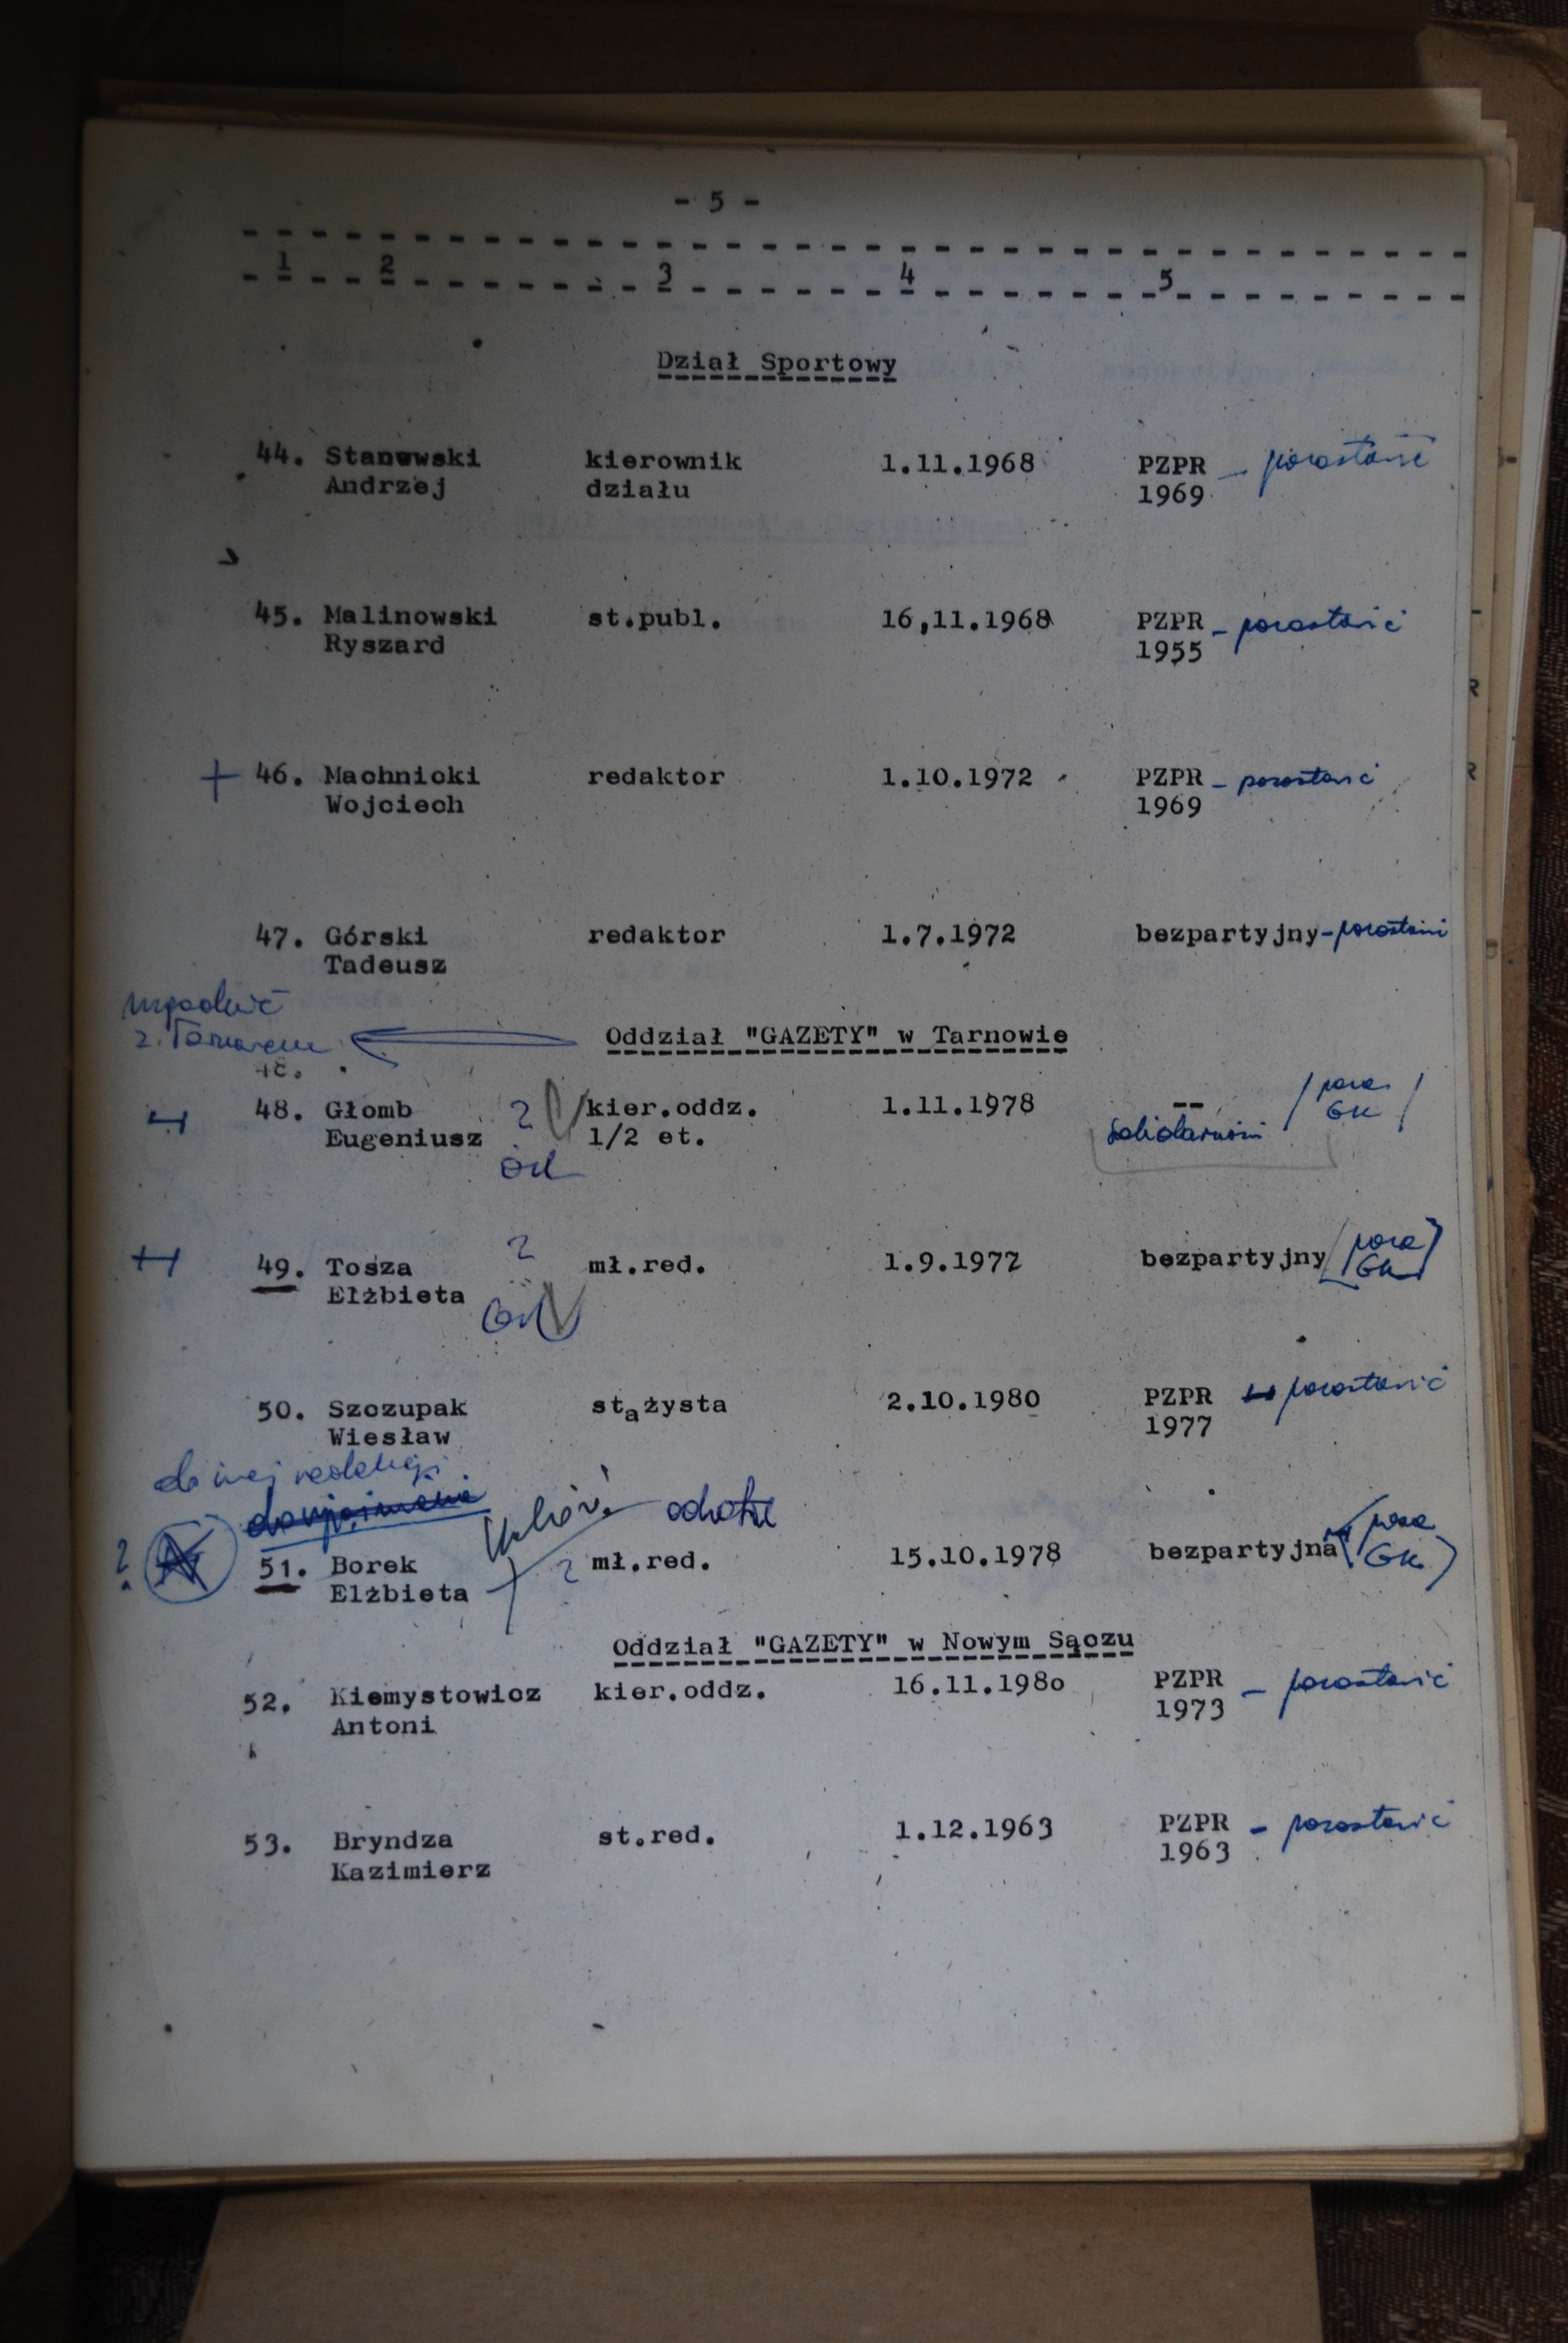 - 5 -
1 2 3 4 5
Dział Sportowy
44. Stanowski kierownik 1.11.1968 PZPR - pozostawić
Andrzej działu 1969
45. Malinowski st.publ. 16,11.1968 PZPR - pozostawić
Ryszard 1955
+ 46. Machnicki redaktor 1.10.1972 PZPR - pozostawić
Wojciech 1969
47. Górski redaktor 1.7.1972 bezpartyjny - pozostawić
Tadeusz
uzgodnić
z Tarnowem
Oddział "GAZETY" w Tarnowie
48. Głomb ? kier.oddz. 1.11.1978 -- / poza
Eugeniusz 1/2 et. Solidarność GK /
49. Tosza ? mł.red. 1.9.1977 bezpartyjny (poza
Elżbieta GK)
50. Szczupak stażysta 2.10.1980 PZPR - pozostawić
Wiesław 1977
do innej redakcji
odchodzi
? 51. Borek ? mł.red. 15.10.1978 bezpartyjna (poza
Elżbieta GK)
Oddział "GAZETY" w Nowym Sączu
52. Kiemystowicz kier.oddz. 16.11.198o PZPR - pozostawić
Antoni 1973
53. Bryndza st.red. 1.12.1963 PZPR - pozostawić
Kazimierz 1963